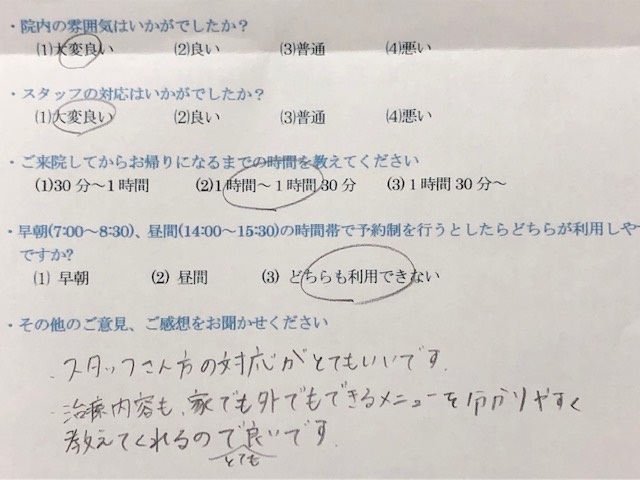 ・院内の雰囲気はいかがでしたか？
(1)大変良い (2)良い (3)普通 (4)悪い
・スタッフの対応はいかがでしたか？
(1)大変良い (2)良い (3)普通 (4)悪い
・ご来院してからお帰りになるまでの時間を教えてください
(1)30分～1時間 (2)1時間～1時間30分 (3)1時間30分～
・早朝(7:00～8:30)、昼間(14:00～15:30)の時間帯で予約制を行うとしたらどちらが利用しや
ですか?
(1) 早朝 (2) 昼間 (3) どちらも利用できない
・その他のご意見、ご感想をお聞かせください
・スタッフさん方の対応がとてもいいです。
・治療内容も、家でも外でもできるメニューを分かりやすく
教えてくれるので良いです。
とても